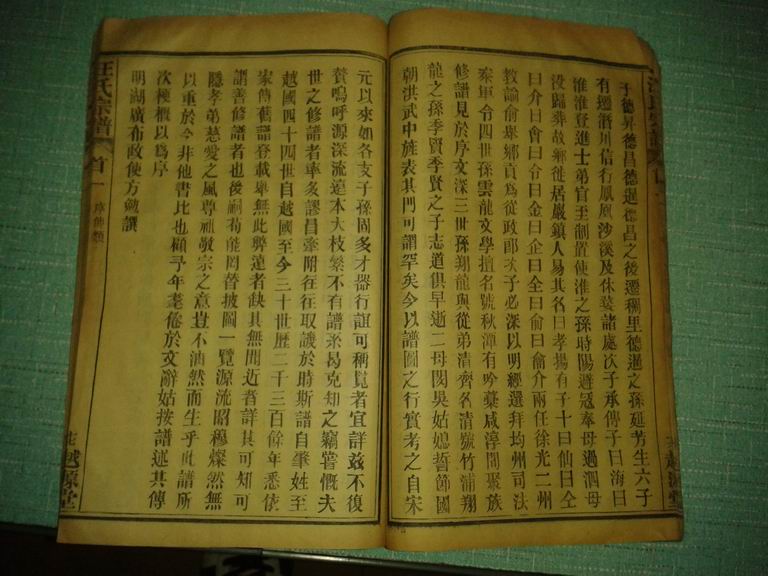 子德昇德昌德暹德昌之後遷稠里德暹之孫延芳生六子
有遷潛川信行鳳凰沙溪及休婺諸處次子承傳子曰海曰
淮淮登進士弟官至制置使淮之孫時陽避冦奉母過泗母
没歸葬故鄉徙居嚴鎮人易其名曰孝揚有子十曰仙曰仝
曰介曰會曰令曰金曰企曰全曰俞曰侖介兩任徐光二州
教諭俞舉鄉貢爲從政郎次子必深以明經選拜均州司法
秦軍令四世孫雲龍文學擅名號秋潭有吟藁咸淳間聚族
修譜見於序文深三世孫翔龍與從弟清齊名清號竹浦翔
龍之孫季賢季賢之子志道俱早逝二母閔吳姑媳誓節國
朝洪武中旌表其門可謂罕矣今以譜圖之行實考之自宋
元以來如各支子孫固多才器行誼可稱覧者宜詳兹不復
贅嗚呼源深流遠本大枝繁不有譜系曷克知之竊嘗慨夫
世之修譜者率多謬昌牽附往往取譏於時斯譜自肇姓至
越國四十四世自越國至今三十世歷二千三百餘年悉依
家傳舊譜登載畢無此弊遠者缺其無聞近者詳其可知可
謂善修譜者也後嗣苟能因昔披圖一覽源流昭穆燦然無
隱孝弟慈愛之風尊祖敬宗之意豈不油然而生乎此譜所
以重於今非他書比也顧予年耄倦於文辭姑按譜述其傳
次梗槪以爲序
明湖廣布政使方勉譔
汪氏宗譜
首一
序傳類
越源堂